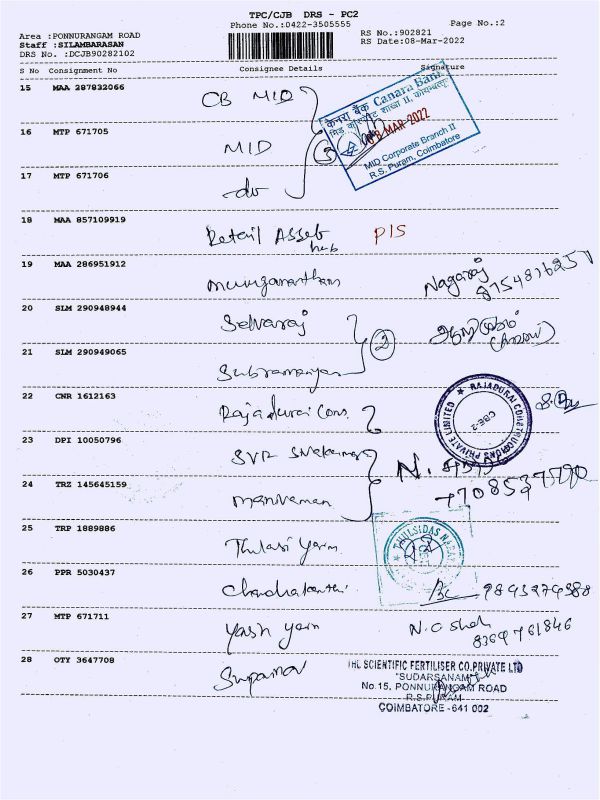 TPC/CJB DRS - PC2
Phone No.:0422-3505555
Page No.:2
Area :PONNURANGAM ROAD
RS No.:902821
Staff :SILAMBARASAN
RS Date:08-Mar-2022
DRS No. :DCJB90282102
S No Consignment No Consignee Details Signature
15 MAA 287832066 CB MID
केनरा बैंक Canara Bank
08 MAR 2022
MID Corporate Branch II
R.S. Puram, Coimbatore
16 MTP 671705 MID 3
17 MTP 671706 -do
18 MAA 857109919 Retail Asset hub PIS
19 MAA 286951912 Nagaraj
8754816257
20 SLM 290948944 Selvaraj
2
21 SLM 290949065 Subramaniyan
22 CNR 1612163 Rajadurai Cons.
RAJADURAI CONSTRUCTIONS PRIVATE LIMITED
CBE-2
23 DPI 10050796 SVR
24 TRZ 145645159 Manivannan
25 TRP 1889886 Thulasi Yarn
THULSIDAS
26 PPR 5030437 Chandrakanthi
27 MTP 671711 Yash Yarn N.C Shah
8369761846
28 OTY 3647708
THE SCIENTIFIC FERTILISER CO.PRIVATE LTD
"SUDARSANAM"
No.15, PONNURANGAM ROAD
R.S.PURAM
COIMBATORE-641 002